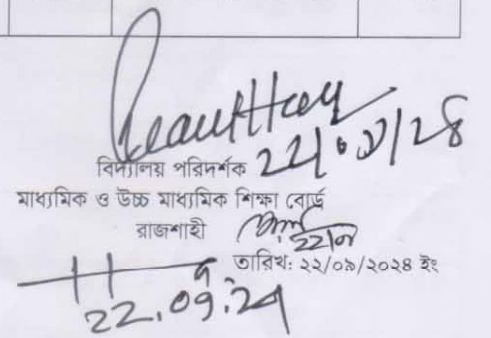 ২২/০৯/২৪
বিদ্যালয় পরিদর্শক
মাধ্যমিক ও উচ্চ মাধ্যমিক শিক্ষা বোর্ড
রাজশাহী
২২/৯
তারিখ: ২২/০৯/২০২৪ ইং
22.09.24